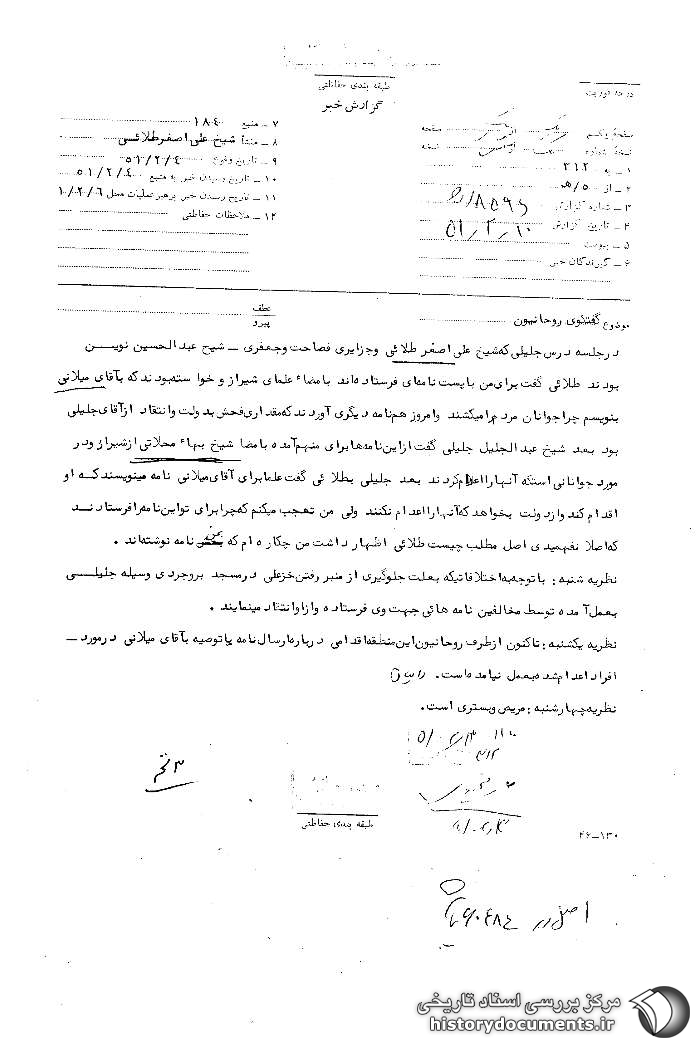 طبقه بندی حفاظتی
گزارش خبر
درجه فوریت
صفحه یکم از صفحه
نسخه شماره از نسخه
۱ ـ به ۳۱۲
۲ ـ از ۵ / ه‍
۳ ـ شماره گزارش
۴ ـ تاریخ گزارش
۵ ـ پیوست
۶ ـ گیرندگان خبر
۷ ـ منبع ۱۸۴۰
۸ ـ منشأ شیخ علی اصغر طلائی
۹ ـ تاریخ وقوع ۵۱/۲/۴
۱۰ ـ تاریخ رسیدن خبر به منبع ۵۱/۲/۴
۱۱ ـ تاریخ رسیدن خبر برهبر عملیات محل
۱۲ ـ ملاحظات حفاظتی
موضوع گفتگوی روحانیون
عطف
پیرو
در جلسه درس جلیلی که شیخ علی اصغر طلائی وجزایری فصاحت وجعفری ـ شیخ عبدالحسین نویسن
بودند طلائی گفت برای من با پست نامه‌ای فرستاده‌اند با مضاء علمای شیراز و خواسته بودند که بآقای میلانی
بنویسم چرا جوانان مردم را میکشند وامروز هم نامه دیگری آوردند که مقداری فحش بدولت وانتقاد ازآقای جلیلی
بود بعد شیخ عبدالجلیل جلیلی گفت از این نامه‌ها برای منهم آمده با مضا شیخ بهاء محلاتی از شیراز ودر
مورد جوانانی استکه آنها را اعدام کردند بعد جلیلی بطلائی گفت علما برای آقای میلانی نامه مینویسند که او
اقدام کند واز دولت بخواهد که آنها را اعدام نکنند ولی من تعجب میکنم که چرا برای تو این نامه را فرستادند
که اصلا نفهمیدی اصل مطلب چیست طلائی اظهار داشت من چکاره ام که بمن نامه نوشته‌اند .
نظریه شنبه : با توجه به اختلافاتیکه بعلت جلوگیری از منبر رفتن خزعلی در مسجد بروجردی وسیله جلیلی
بعمل آمده توسط مخالفین نامه هائی جهت وی فرستاده واز او انتقاد مینمایند .
نظریه یکشنبه : تاکنون از طرف روحانیون این منطقه اقدامی درباره ارسال نامه یا توصیه بآقای میلانی در مورد ـ
افراد اعدام شده بعمل نیامده است .
نظریه چهارشنبه : مریض وبستری است .
طبقه بندی حفاظتی
۴۶ـ۱۳۰
اصل در
مرکز بررسی اسناد تاریخی
historydocuments.ir